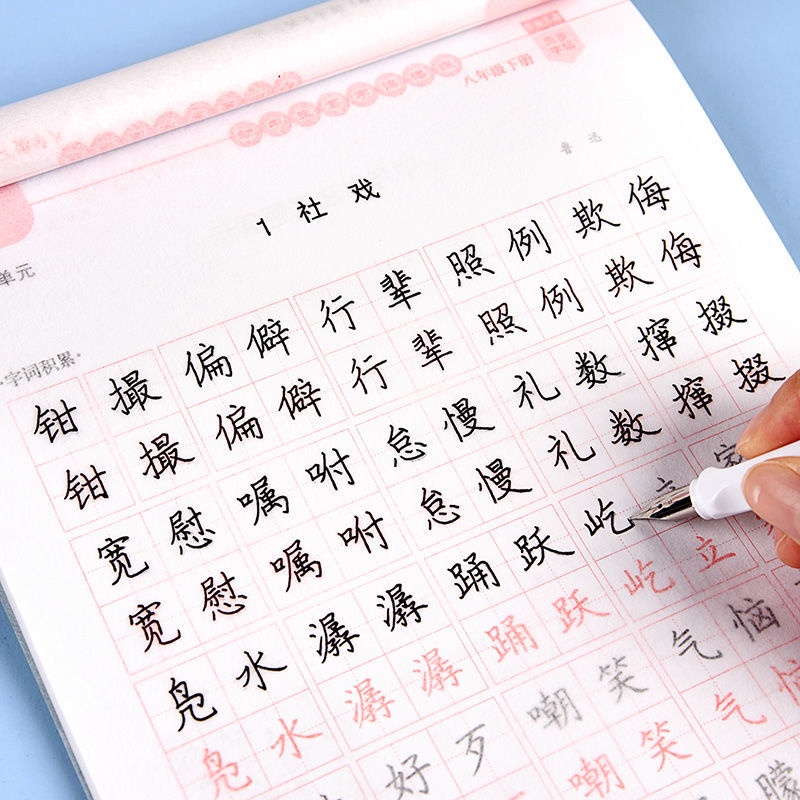 八年级下册
鲁迅
1 社戏
单元
字词积累
钳 撮 偏僻 行辈 照例 欺侮
钳 撮 偏僻 行辈 照例 欺侮
宽慰 嘱咐 怠慢 礼数 撺掇
宽慰 嘱咐 怠慢 礼数 撺掇
凫水 潺潺 踊跃 屹立
凫水 潺潺 踊跃 屹立
好歹 嘲笑 气恼
嘲笑 气恼
朦